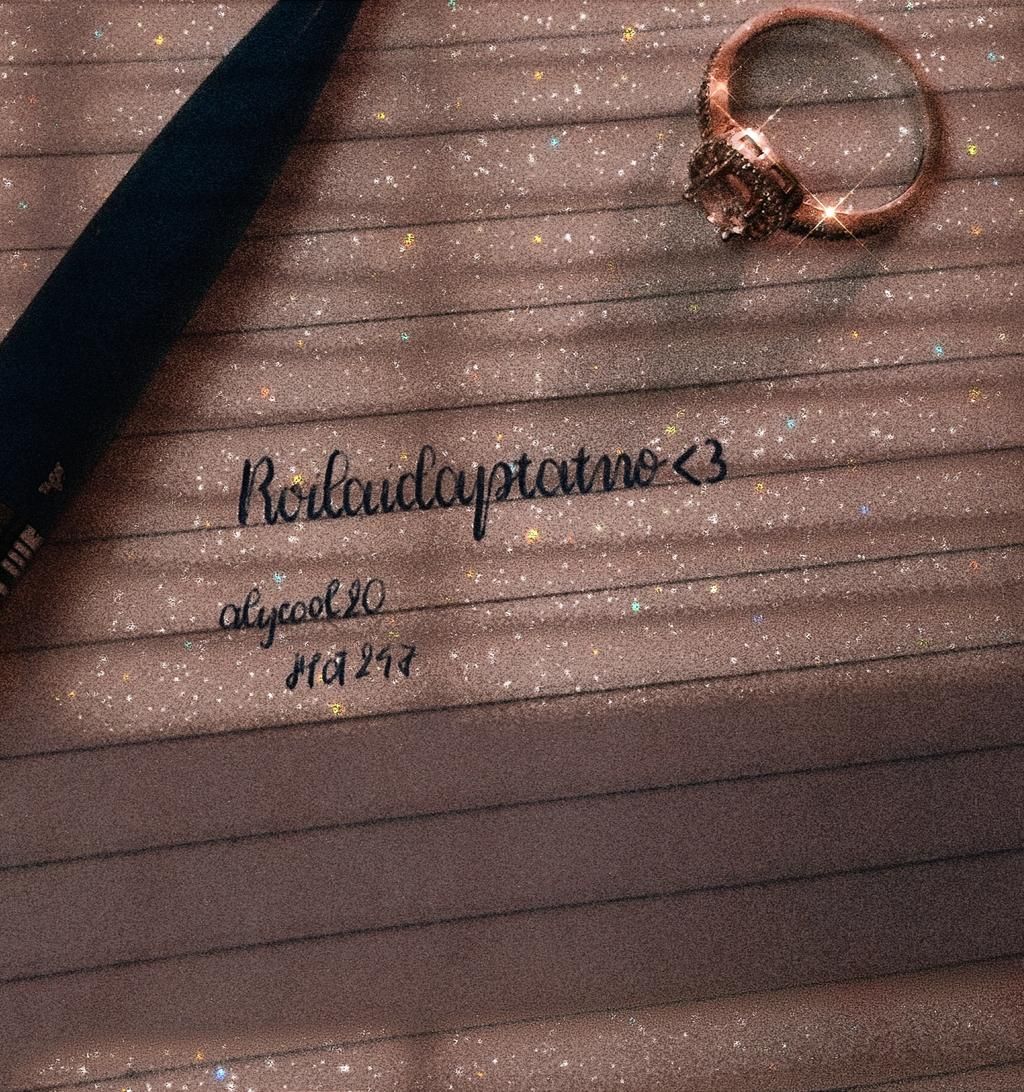 Roilaidayptatno <3
alycool20
Mat 297